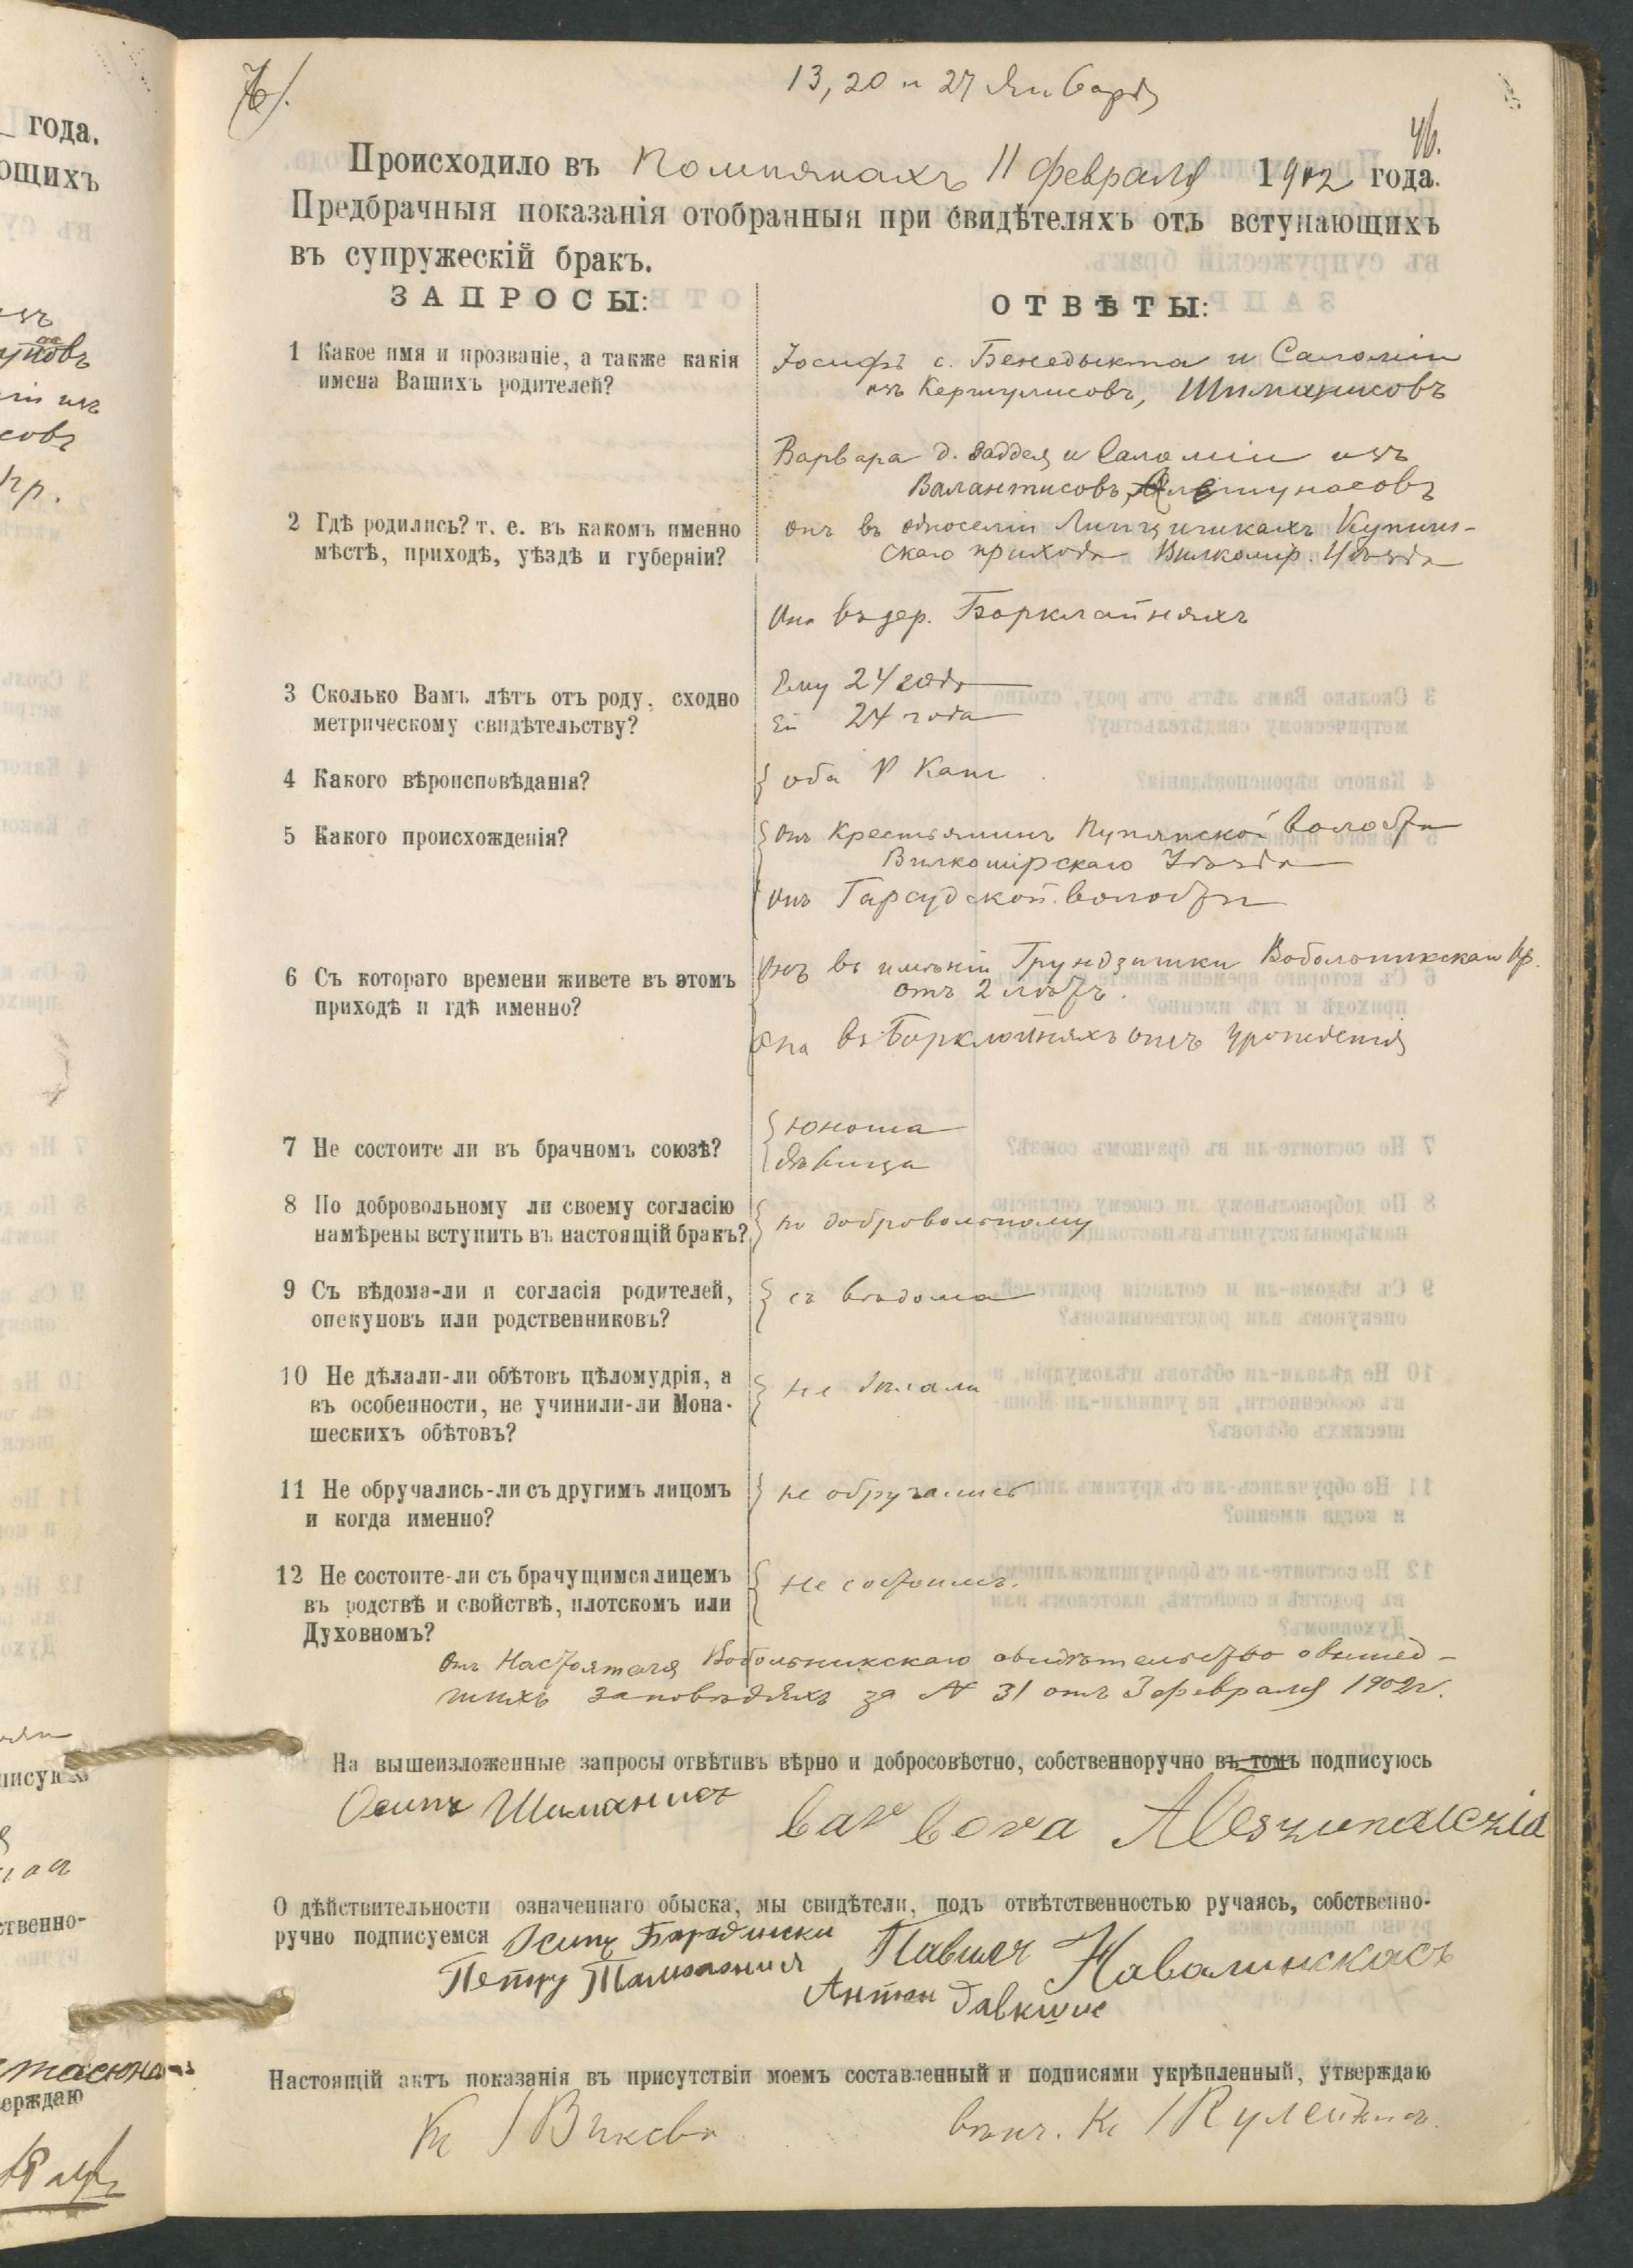 13, 20 и 27 Января
46.
Происходило въ Помпянахъ 11 Февраля 1902 года.
Предбрачныя показанія отобранныя при свидѣтеляхъ отъ вступающихъ
въ супружескій бракъ.
ЗАПРОСЫ:
ОТВѢТЫ:
1 Какое имя и прозваніе, а также какія
имена Вашихъ родителей?
Іосифъ с. Бенедыкта и Саломіи
изъ Кершулисовъ, Шиманисовъ
Варвара д. Фаддея и Саломіи изъ
Валантисовъ, Алешунасовъ
2 Гдѣ родились? т. е. въ какомъ именно
мѣстѣ, приходѣ, уѣздѣ и губерніи?
онъ въ односеліи Купиш-
скаго прихода Вилкомір. Уѣзда
Она въ дер. Барклайняхъ
3 Сколько Вамъ лѣтъ отъ роду, сходно
метрическому свидѣтельству?
Ему 24 года
Ей 24 года
4 Какого вѣроисповѣданія?
оба Р Кат
5 Какого происхожденія?
онъ Крестьянинъ Пупянской волости
Вилкомірскаго Уѣзда
Гарсудской волости
6 Съ котораго времени живете въ этомъ
приходѣ и гдѣ именно?
Онъ въ имѣніи Грундзишки Вабольникскаго пр.
отъ 2 лѣтъ.
она въ Барклайняхъ отъ урожденія
7 Не состоите ли въ брачномъ союзѣ?
юноша
дѣвица
8 По добровольному ли своему согласію
намѣрены вступить въ настоящій бракъ?
по добровольному
9 Съ вѣдома-ли и согласія родителей,
опекуновъ или родственниковъ?
съ вѣдома
10 Не дѣлали-ли обѣтовъ цѣломудрія, а
въ особенности, не учинили-ли Мона-
шескихъ обѣтовъ?
не дѣлали
11 Не обручались-ли съ другимъ лицомъ
и когда именно?
не обручались
12 Не состоите-ли съ брачущимся лицемъ
въ родствѣ и свойствѣ, плотскомъ или
Духовномъ?
Не состоимъ.
Отъ Настоятеля Вабольникскаго свидѣтельство о вышед-
шихъ заповѣдяхъ за N 31 отъ 3 февраля 1902 г.
На вышеизложенные запросы отвѣтивъ вѣрно и добросовѣстно, собственноручно въ томъ подписуюсь
Осипъ Шиманисъ
barbora Aleszunaiczia
О дѣйствительности означеннаго обыска, мы свидѣтели, подъ отвѣтственностью ручаясь, собственно-
ручно подписуемся Осипъ Барадински Павилъ Навалинскасъ
Петру Антон Давкшис
Настоящій актъ показанія въ присутствіи моемъ составленный и подписями укрѣпленный, утверждаю